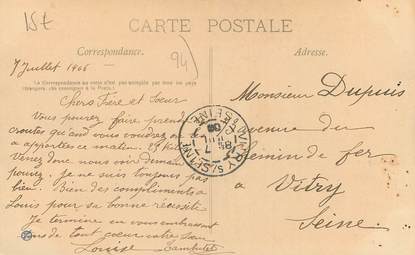 CARTE POSTALE
Correspondance.
Adresse.
94)
7 Juillet 1906
La Correspondance au recto n'est pas acceptée par tous les pays
étrangers. (Se renseigner à la Poste.)
Chers Frère et Sœur
Vous pouvez faire prendre
croutes quand vous voudrez
a apportées ce matin. 29 Kil
Venez donc nous voir Deman
pouvez. Je ne suis toujours pas
bien. Bien des compliments à
Louis pour sa bonne réussite
Je termine en vous embrassant
tous de tout cœur votre Sœur
Louise
VITRY S/ SEINE
SEINE
Monsieur Dupuis
avenue du
chemin de fer
à
Vitry
Seine.